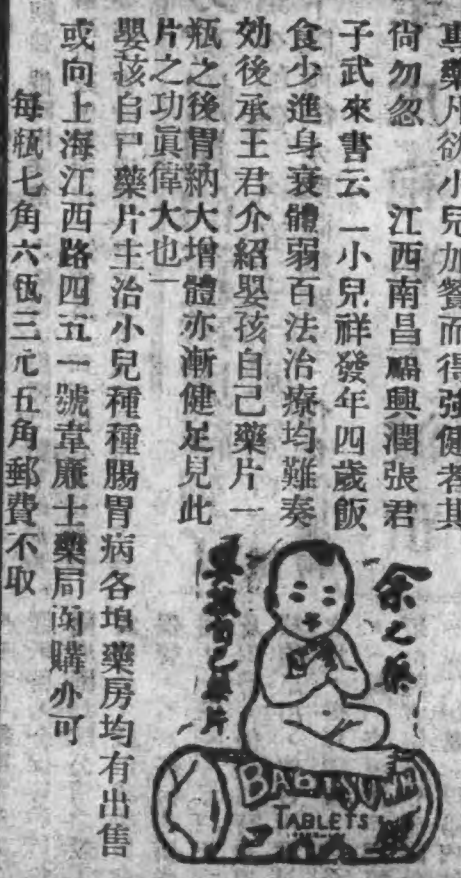 專藥凡欲小兒加餐而得強健者其
尙勿忽　江西南昌福興潤張君
子武來書云「小兒祥發年四歲飯
食少進身衰體弱百法治療均難奏
効後承王君介紹嬰孩自己藥片一
瓶之後胃納大增體亦漸健足見此
片之功眞偉大也」
嬰孩自己藥片主治小兒種種腸胃病各埠藥房均有出售
或向上海江西路四五一號韋廉士藥局函購亦可
每瓶七角六瓶三元五角郵費不取
余之藥
嬰孩自己藥片
BABY'S OWN
TABLETS
己